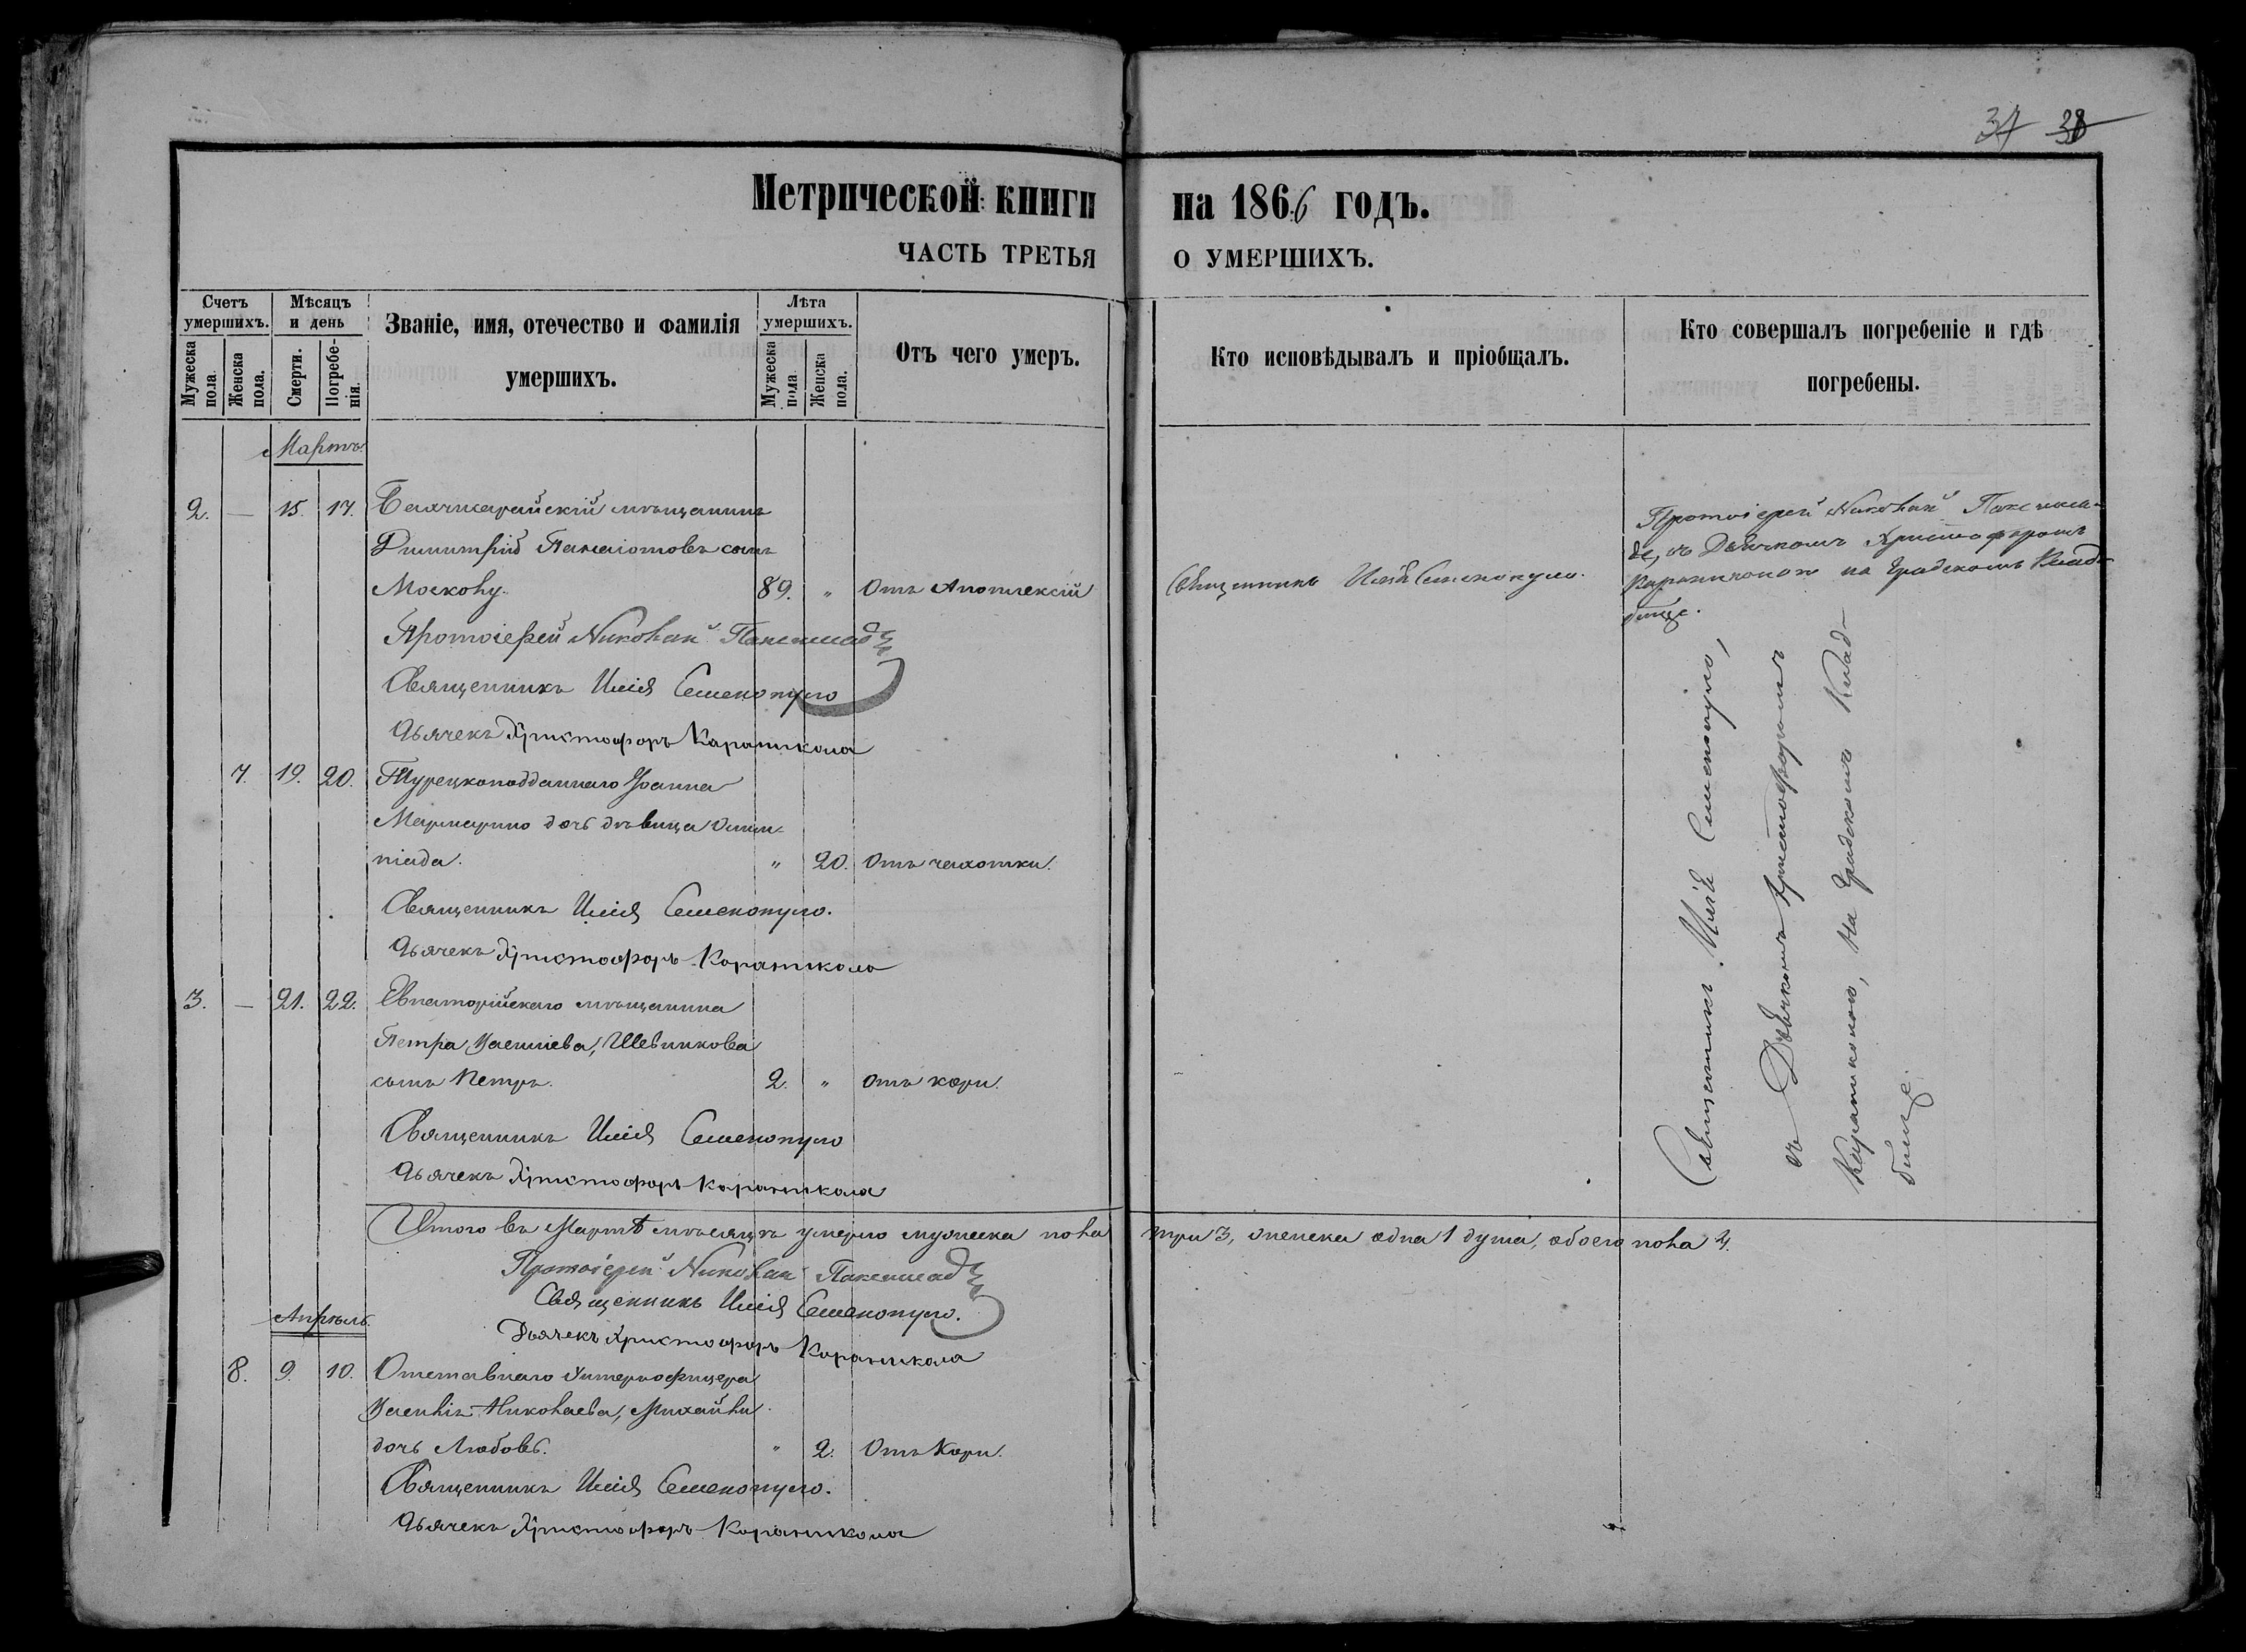 37 38
Метрической книги на 1866 годъ.
ЧАСТЬ ТРЕТЬЯ О УМЕРШИХЪ.
Счетъ умершихъ.
Мужеска пола.
Женска пола.
Мѣсяцъ и день
Смерти.
Погребенія.
Званіе, имя, отечество и фамилія умершихъ.
Лѣта умершихъ.
Мужеска пола
Женска пола.
Отъ чего умеръ.
Кто исповѣдывалъ и пріобщалъ.
Кто совершалъ погребеніе и гдѣ погребены.
Мартъ.
2. — 15. 17. мѣщанинъ
Димитрій Панаіотовъ сынъ
Москову. 89. " Отъ Апоплексіи
Священникъ Илія Семенопуло.
Протоіерей Николай
де, съ Дьячкомъ Христофоромъ
Караниколою на Градскомъ Клад-
бище.
Протоіерей Николай
Священникъ Илія Семенопуло
Дьячекъ Христофоръ Караникола
7. 19. 20. Турецкоподданнаго Іоанна
Мармарино дочь дѣвица Олим-
піада. " 20. Отъ чахотки.
Священникъ Илія Семенопуло.
Дьячекъ Христофоръ Караникола
3. — 21. 22. Евпаторійскаго мѣщанина
Петра Шевникова
сынъ Петръ. 2. " Отъ кори.
Священникъ Илія Семенопуло
Дьячекъ Христофоръ Караникола
Священникъ Илія Семенопуло,
съ Дьячкомъ Христофоромъ
Караниколою, на Градскомъ Клад-
бище.
Итого въ Мартѣ мѣсяцѣ умерло мужеска пола три 3, женска одна 1 душа, обоего пола 4.
Протоіерей Николай
Священникъ Илія Семенопуло.
Дьячекъ Христофоръ Караникола
Апрѣль.
8. 9. 10. Отставнаго Унтерофицера
Николаева, Михайли
дочь Любовь. " 2. Отъ Кори.
Священникъ Илія Семенопуло.
Дьячекъ Христофоръ Караникола